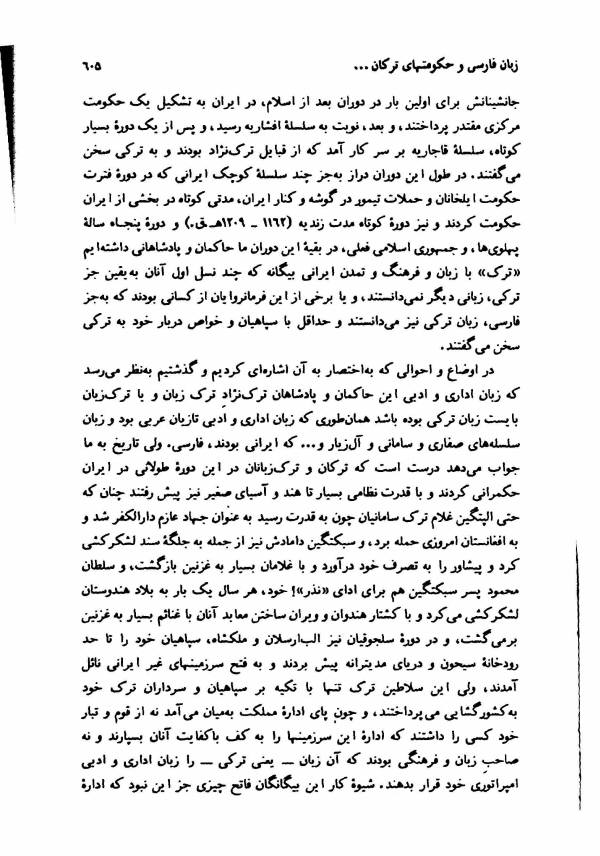 زبان فارسی و حکومتهای ترکان ... ۶۰۵
جانشینانش برای اولین بار در دوران بعد از اسلام، در ایران به تشکیل یک حکومت
مرکزی مقتدر پرداختند، و بعد، نوبت به سلسلهٔ افشاریه رسید، و پس از یک دورهٔ بسیار
کوتاه، سلسلهٔ قاجاریه بر سر کار آمد که از قبایل ترک‌نژاد بودند و به ترکی سخن
می‌گفتند. در طول این دوران دراز به‌جز چند سلسلهٔ کوچک ایرانی که در دورهٔ فترت
حکومت ایلخانان و حملات تیمور در گوشه و کنار ایران، مدتی کوتاه در بخشی از ایران
حکومت کردند و نیز دورهٔ کوتاه مدت زندیه (۱۱۶۲ ـ ۱۲۰۹هـ.ق.) و دورهٔ پنجاه سالهٔ
پهلوی‌ها، و جمهوری اسلامی فعلی، در بقیهٔ این دوران ما حاکمان و پادشاهانی داشته‌ایم
«ترک» با زبان و فرهنگ و تمدن ایرانی بیگانه که چند نسل اول آنان به‌یقین جز
ترکی، زبانی دیگر نمی‌دانستند، و یا برخی از این فرمانروایان از کسانی بودند که به‌جز
فارسی، زبان ترکی نیز می‌دانستند و حداقل با سپاهیان و خواص دربار خود به ترکی
سخن می‌گفتند.
در اوضاع و احوالی که به‌اختصار به آن اشاره‌ای کردیم و گذشتیم به‌نظر می‌رسد
که زبان اداری و ادبی این حاکمان و پادشاهان ترک‌نژادِ ترک زبان و یا ترک‌زبان
بایست زبان ترکی بوده باشد همان‌طوری که زبان اداری و ادبی تازیان عربی بود و زبان
سلسله‌های صفاری و سامانی و آل‌زیار و... که ایرانی بودند، فارسی. ولی تاریخ به ما
جواب می‌دهد درست است که ترکان و ترک‌زبانان در این دورهٔ طولانی در ایران
حکمرانی کردند و با قدرت نظامی بسیار تا هند و آسیای صغیر نیز پیش رفتند چنان که
حتی الپتگین غلام ترک سامانیان چون به قدرت رسید به عنوان جهاد عازم دارالکفر شد و
به افغانستان امروزی حمله برد، و سبکتگین دامادش نیز از جمله به جلگهٔ سند لشکرکشی
کرد و پیشاور را به تصرف خود درآورد و با غلامان بسیار به غزنین بازگشت، و سلطان
محمود پسر سبکتگین هم برای ادای «نذر»! خود، هر سال یک بار به بلاد هندوستان
لشکرکشی می‌کرد و با کشتار هندوان و ویران ساختن معابد آنان با غنائم بسیار به غزنین
برمی‌گشت، و در دورهٔ سلجوقیان نیز الب‌ارسلان و ملکشاه، سپاهیان خود را تا حد
رودخانهٔ سیحون و دریای مدیترانه پیش بردند و به فتح سرزمینهای غیر ایرانی نائل
آمدند، ولی این سلاطین ترک تنها با تکیه بر سپاهیان و سرداران ترک خود
به‌کشورگشایی می‌پرداختند، و چون پای ادارهٔ مملکت به‌میان می‌آمد نه از قوم و تبار
خود کسی را داشتند که ادارهٔ این سرزمینها را به کف باکفایت آنان بسپارند و نه
صاحب زبان و فرهنگی بودند که آن زبان ــ یعنی ترکی ــ را زبان اداری و ادبی
امپراتوری خود قرار بدهند. شیوهٔ کار این بیگانگان فاتح چیزی جز این نبود که ادارهٔ